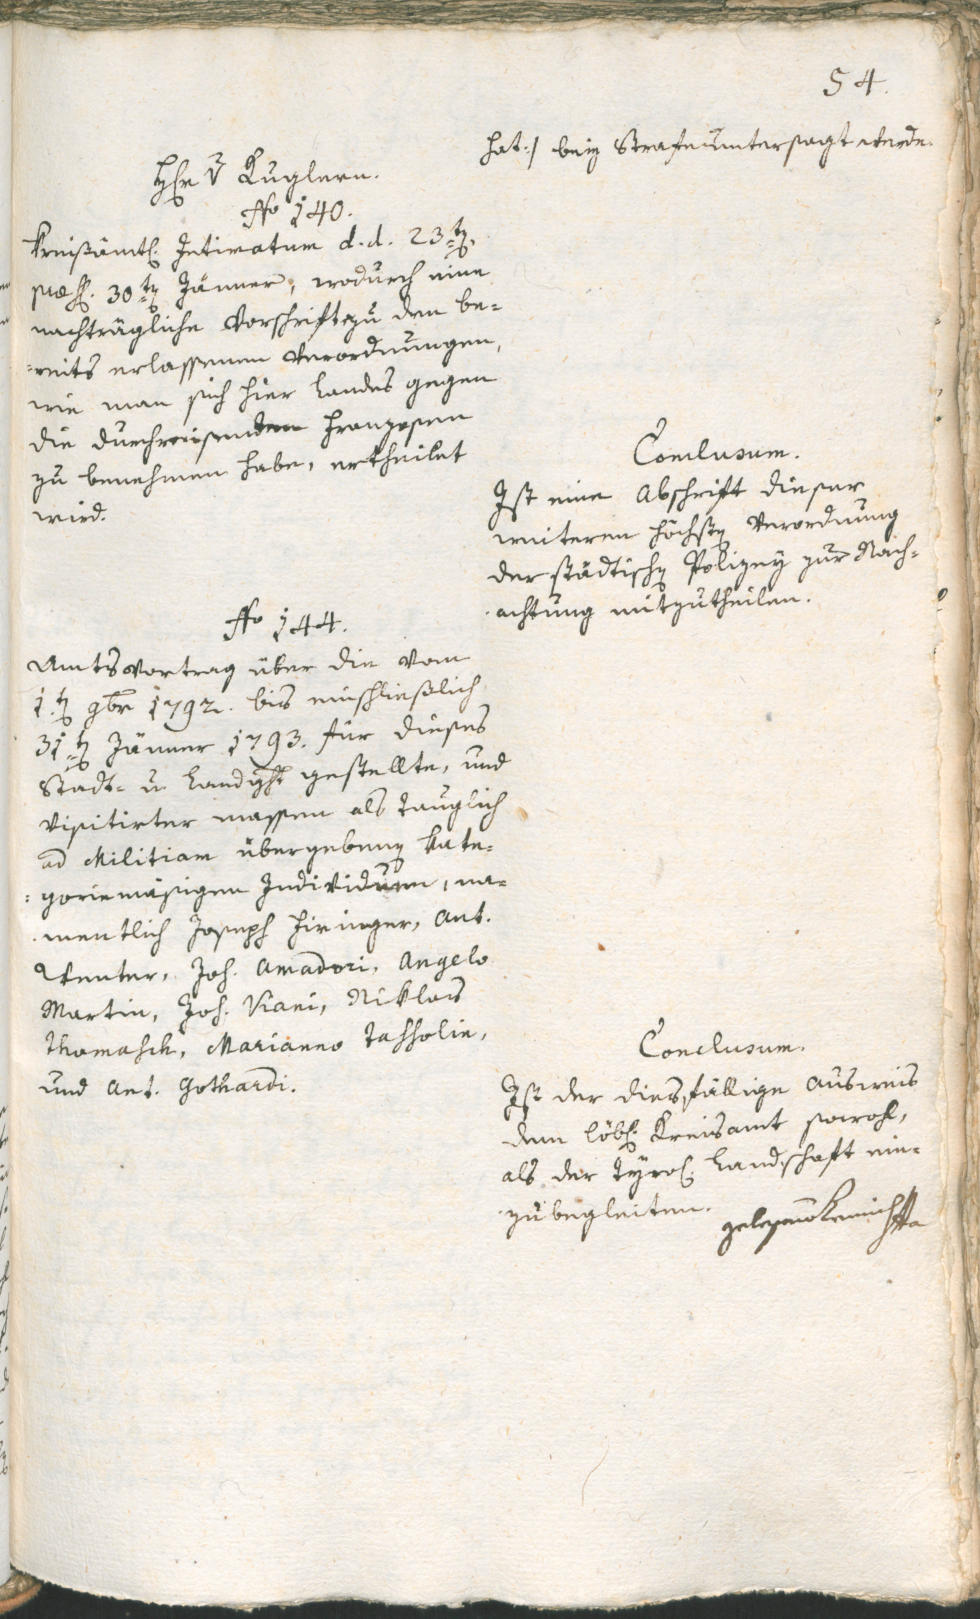 54.
hat:/ beÿ Strafe untersagt werde.
Hr V Kuglern.
No 140.
Kreißämtl. Intimatum d.d. 23t.
praes. 30t Jänner, wodurch eine
nachträgliche Vorschrift zu den be-
-reits erlassenen Verordnungen,
wie man sich hier Landes gegen
die durchreisenden Franzosen
zu benehmen habe, ertheilet
wird.
Conclusum.
Ist eine Abschrift dieser
weiteren höchstn Verordnung
der städtischn Polizeÿ zur Nach-
achtung mitzutheilen.
No 144.
Amtsvortrag über die vom
1.t 9br 1792. bis einschließlich
31t Jänner 1793. für dieses
Stadt- u Landght gestellte, und
visitirter massen als tauglich
ad Militiam übergebenn kate-
-goriemäsigen Individuen, na-
mentlich Joseph Hiringer, Ant.
Venter, Joh. Amadori, Angelo
Martin, Joh. Viani, Niklas
Thomasch, Marianno Tassolin,
und Ant. Gothardi.
Conclusum.
Ist der diesfällige Ausweis
dem löbl. Kreisamt sowohl,
als der tÿrol. Landschaft ein-
zubegleiten.